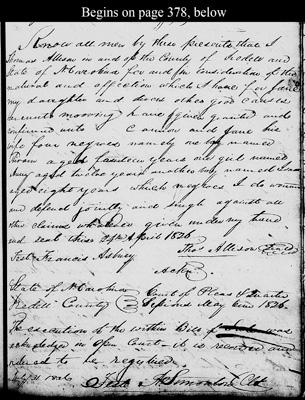 Begins on page 378, below
Know all men by these presents that I
Thomas Allison in and of the County of Iredell and
State of N Carolina for and in consideration of the
natural and affection which I have for
my daughter and divers other good causes
me unto moving have given granted and
confirmed unto Cannon and Jane his
wife four negroes namely one boy named
aged fourteen years one girl named
aged twelve years another boy named
aged eight years which negroes I do warrant
and defend jointly and singly against all
claims whatever given under my hand
and seal this April 1826
Test Francis Asbury Thos Allison Seal
State of N Carolina Court of Pleas &
Iredell County May 1826
The execution of the within Bill of was
acknowledged in Open Court it is recorded and
ordered to be registered
Test A Simonton Clk